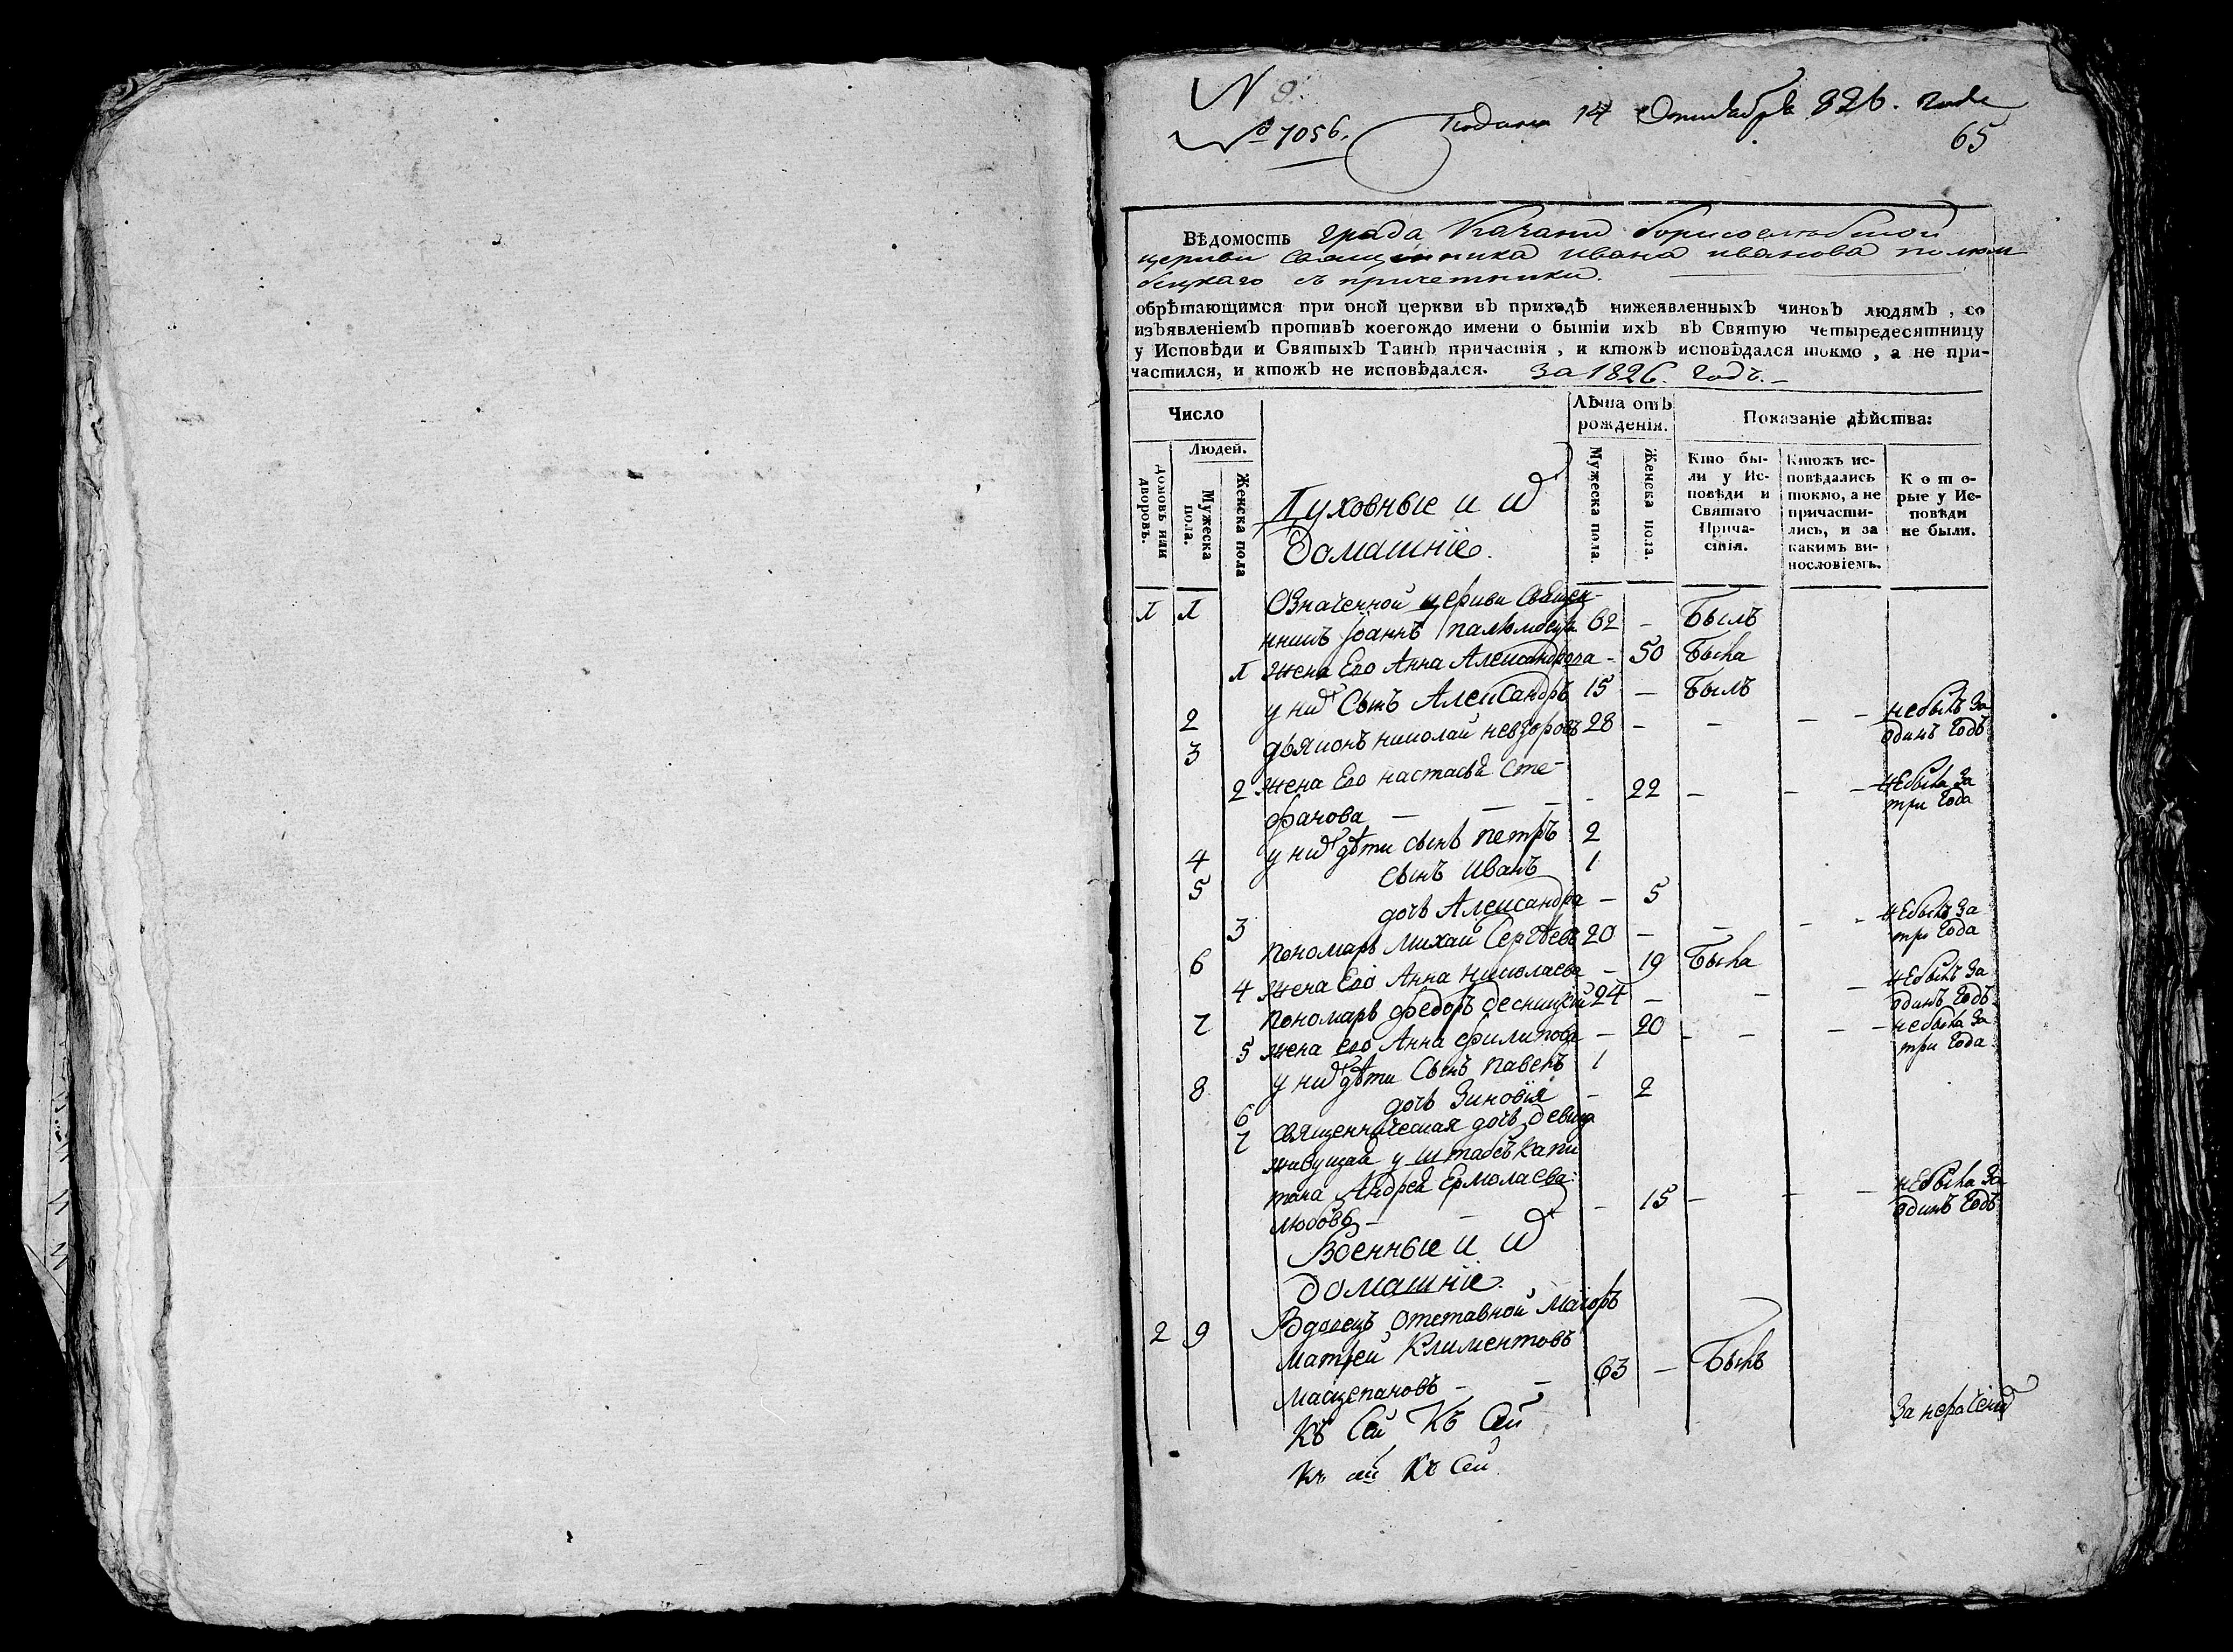 N 9.
№ 7056.
Подана 14 Октября 826. года
65
ВѢдомость града Казани борисоглебской
церкви священника ивана иванова полом
бецкаго съ причетники.
обрѣтающимся при оной церкви въ приходѣ нижеявленныхъ чиновъ людямъ, со
изъявленіемъ противъ коегождо имени о бытіи ихъ въ Святую четыредесятницу
у Исповѣди и Святыхъ Таинъ причастія, и ктожъ исповѣдался токмо, а не при-
частился, и ктожъ не исповѣдался. За 1826. годъ.
Число
Лѣта отъ
рожденія.
Показаніе дѣйства:
Людей.
Домовъ или
дворовъ.
Мужеска
пола.
Женска пола
Мужеска пола.
Женска пола.
Кто бы-
ли у Ис-
повѣди и
Святаго
Прича-
стія.
Ктожъ ис-
повѣдались
токмо, а не
причасти-
лись, и за
какимъ ви-
нословіемъ.
Кото-
рые у Ис-
повѣди
не были.
Духовные и ихъ
Домашніе.
1 1 Означенной церкви Священ-
никъ Іоаннъ 62 - Былъ
1 жена Его Анна Александрова - 50 Была
2 у нихъ Сынъ Александръ 15 - Былъ
3 дьяконъ николай невзоровъ 28 - - - - небылъ За
одинъ Годъ
2 жена Его настасья Сте-
фанова - - - - 22 - - - неБыла За
три Года
4 у нихъ дѣти сынъ петръ 2
5 сынъ Иванъ 1
3 дочь Александра - 5
6 пономарь Михаи Сергѣевъ 20 - - - - неБылъ За
три Года
4 жена Его Анна Николаева - 19 Была
7 пономарь Федоръ десницкій 24 - - - неБылъ За
одинъ Годъ
5 жена его Анна филипова - 20 - - - - небыла За
три Года
8 у нихъ дѣти Сынъ павелъ 1
6 дочь Зиновія - 2
7 священническая дочь девица
живущая у штабсъ капи
тана Андрея Ермолаева
любовь - - - 15 - - - неБыла За
одинъ Годъ
Военные и ихъ
домашніе.
2 9 Вдовецъ отставной Маіоръ
Матфеи Климентовъ
- - 63 - Былъ
За нерачені
Къ Сей Къ Сей
Къ сей Къ Сей